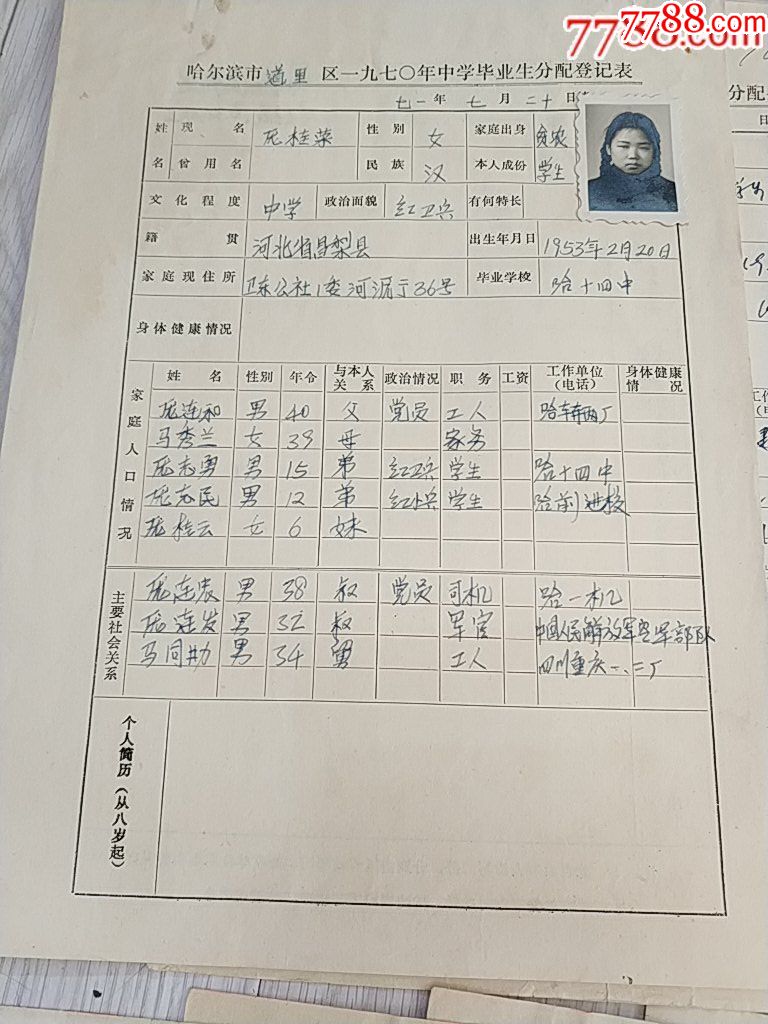 7788.com
7788.com
哈尔滨市道里区一九七〇年中学毕业生分配登记表
七一年七月二十日
姓名 现名 庞桂荣 性别 女 家庭出身 贫农
曾用名 民族 汉 本人成份 学生
文化程度 中学 政治面貌 红卫兵 有何特长
籍贯 河北省昌梨县 出生年月日 1953年2月20日
家庭现住所 卫东公社1委河湄于36号 毕业学校 哈十四中
身体健康情况
家庭人口情况
姓名 性别 年令 与本人关系 政治情况 职务 工资 工作单位(电话) 身体健康情况
庞连和 男 40 父 党员 工人 哈车辆厂
马秀兰 女 39 母 家务
庞志勇 男 15 弟 红卫兵 学生 哈十四中
庞志民 男 12 弟 红小兵 学生 哈前进校
庞桂云 女 6 妹
主要社会关系
庞连 男 38 叔 党员 司机 哈一机
庞连发 男 32 叔 军官 中国人民解放军空军部队
马同 男 34 舅 工人 四川重庆一.二厂
个人简历(从八岁起)
分配
日
学生
19